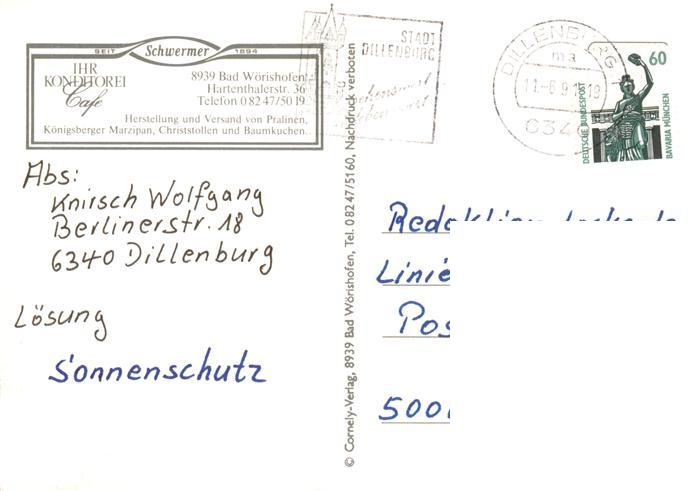 SEIT Schwermer 1894
IHR
KONDITOREI
Café
8939 Bad Wörishofen
Hartenthalerstr. 36
Telefon 0 82 47/50 19
Herstellung und Versand von Pralinen,
Königsberger Marzipan, Christstollen und Baumkuchen.
Abs:
Knirsch Wolfgang
Berlinerstr. 18
6340 Dillenburg
Lösung
Sonnenschutz
© Cornely-Verlag, 8939 Bad Wörishofen, Tel. 0 82 47/5160, Nachdruck verboten
STADT
DILLENBURG
DILLENBURG 1
ma
11.-6.9
634
60
DEUTSCHE BUNDESPOST
BAVARIA MÜNCHEN
Redaktion
Linie
Pos
500